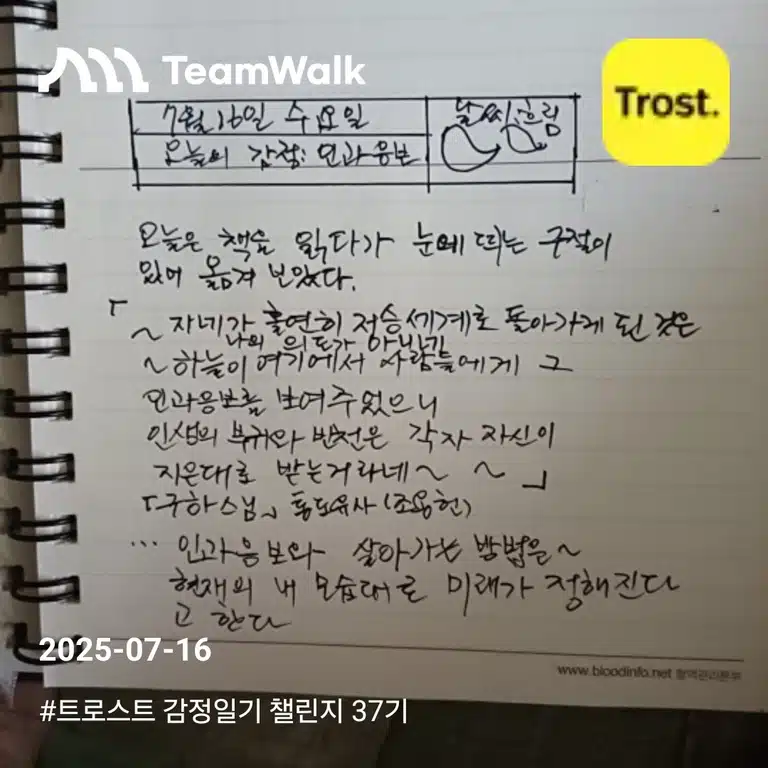 TeamWalk
Trost.
7월 16일 수요일
날씨:흐림
오늘의 감정: 인과응보
오늘은 책을 읽다가 눈에 띄는 구절이
있어 옮겨 보았다.
「~ 자네가 홀연히 저승세계로 돌아가게 된 것은
나의 의도가 아니
~ 하늘이 여기에서 사람들에게 그
인과응보를 보여주었으니
인생의 부귀와 빈천은 각자 자신이
지은대로 받는거라네~ ~」
「구하스님」 통도유사 (조용헌)
... 인과응보와 살아가는 방법은~
현재의 내 모습대로 미래가 정해진다
고 한다
2025-07-16
www.bloodinfo.net 혈액관리본부
#트로스트 감정일기 챌린지 37기